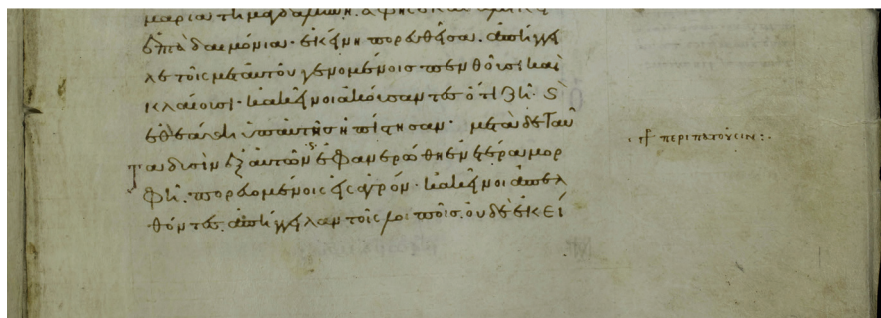 μαρία τῆ μαγδαληνῆ. ἀφ ἧς
ἑπτὰ δαιμόνια· ἐκείνη πορευθεῖσα. ἀπήγγει
λε τοῖς μετ αὐτοῦ γενομένοις πενθοῦσι καὶ
κλαίουσι· κακεῖνοι ἀκούσαντες ὅτι ζῆ. ϗ
ἐθεάθη ὑπ αὐτῆς ἠπίστησαν· μετὰ δὲ ταῦ
τα δυσὶν ἐξ αὐτῶν ἐφανερώθη ἐν ἑτέρα μορ
φῆ. πορευομένοις εἰς ἀγρόν· κακεῖνοι ἀπελ
θόντες. ἀπήγγειλαν τοῖς λοιποῖς. οὐδὲ ἐκεί
περιπατοῦσιν:·